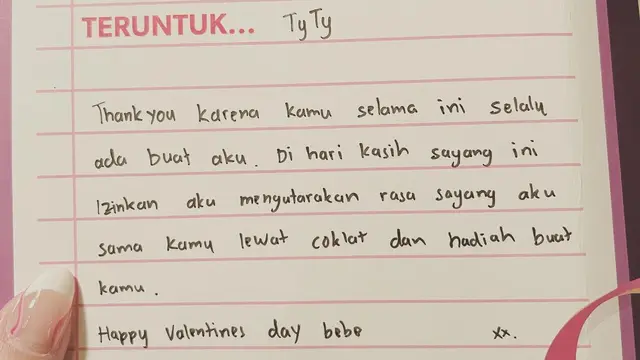 TERUNTUK... TyTy
Thank you karena kamu selama ini selalu
ada buat aku. Di hari kasih sayang ini
Izinkan aku mengutarakan rasa sayang aku
sama kamu lewat coklat dan hadiah buat
kamu.
Happy Valentines day bebe xx.